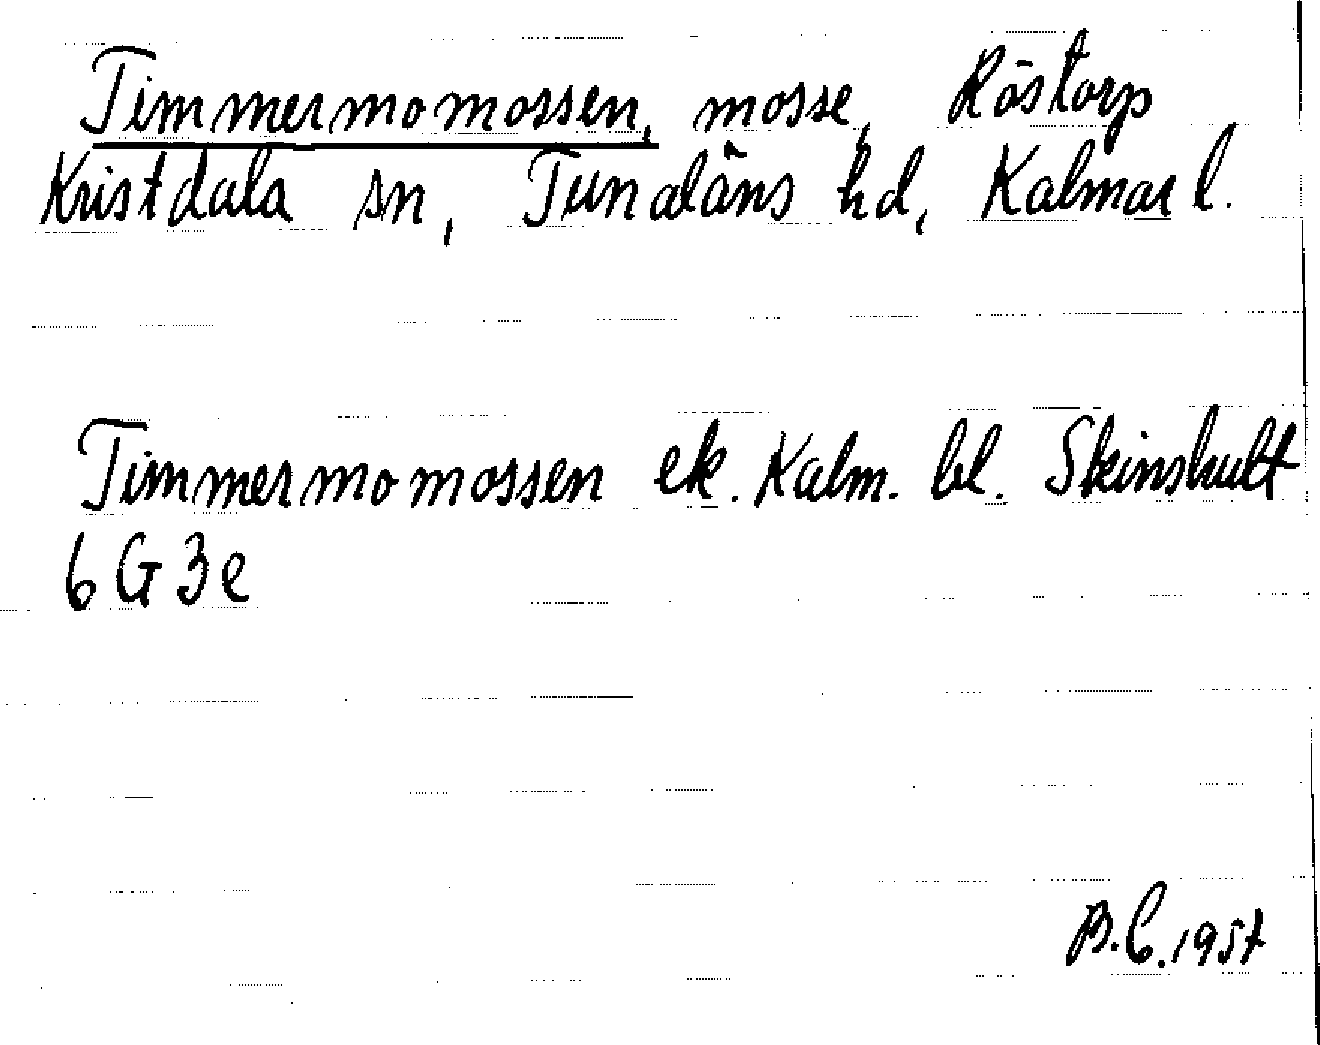 Timmermomossen, mosse, Röstorp
Kristdala sn, Tunaläns hd, Kalmar l.
Timmermomossen ek. Kalm. bl. Skinshult
6 G 3 e
B.C. 1957